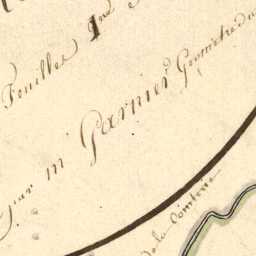 Feuilles 1re
par mr Garnier Géomètre du
de la Comberie